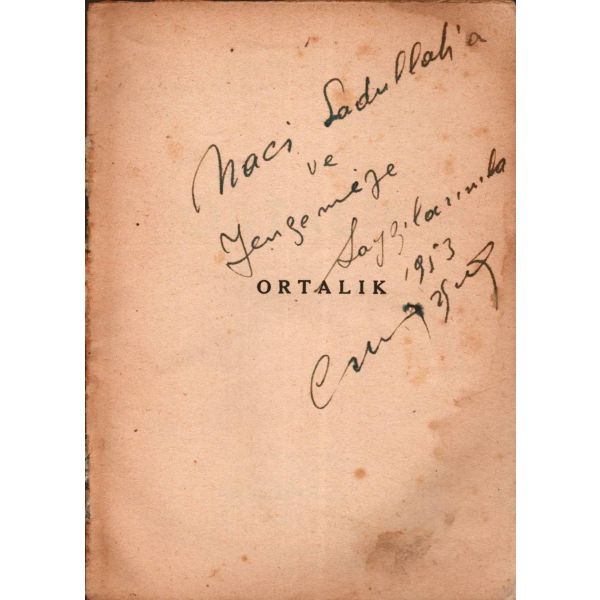 Naci Sadullah'a
ve
Yengemize
Saygılarımla
1953
ORTALIK